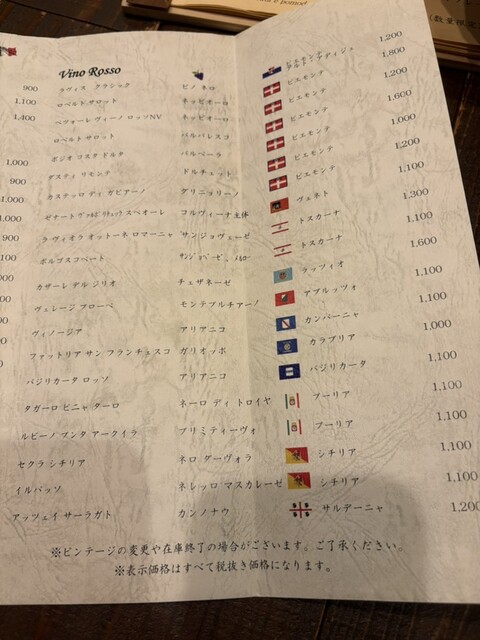 Vino Rosso
900 ラヴィス クラシック ピノ ネロ 1,200
1,100 ロベルト サロット ネッビオーロ ピエモンテ 1,800
1,400 ベフォーレ ヴィーノ ロッソNV ネッビオーロ ピエモンテ 1,200
ロベルト サロット バルバレスコ ピエモンテ 1,600
1,000 ボジオ コスタ ドルタ バルベーラ ピエモンテ 1,000
900 ダスティ リモンテ ドルチェット ピエモンテ 1,200
カステッロ ディ ガビアーノ グリニョリーノ ヴェネト 1,100
ゼナート スペオーレ コルヴィーナ主体 トスカーナ 1,300
900 ラ ヴィオラ オットーネ ロマーニャ サンジョヴェーゼ トスカーナ 1,100
ボルゴスコペート サンジョベーゼ メルロー ラッツィオ 1,600
カザーレ デル ジリオ チェザネーゼ アブルッツォ 1,100
ヴェレージ アローペ モンテプルチアーノ カンパーニャ 1,100
ヴィノージア アリアニコ カラブリア 1,000
ファットリア サン フランチェスコ ガリオッポ バジリカータ 1,100
バジリカータ ロッソ アリアニコ プーリア 1,100
タガーロ ピニャ ターロ ネーロ ディ トロイヤ プーリア 1,100
ルピーノ プンタ アークイラ プリミティーヴォ シチリア 1,100
セクラ シチリア ネロ ダーヴォラ シチリア 1,200
イルバッソ ネレッロ マスカレーゼ サルデーニャ
アッツェイ サーラガト カンノナウ
※ビンテージの変更や在庫終了の場合がございます。ご了承ください。
※表示価格はすべて税抜き価格になります。